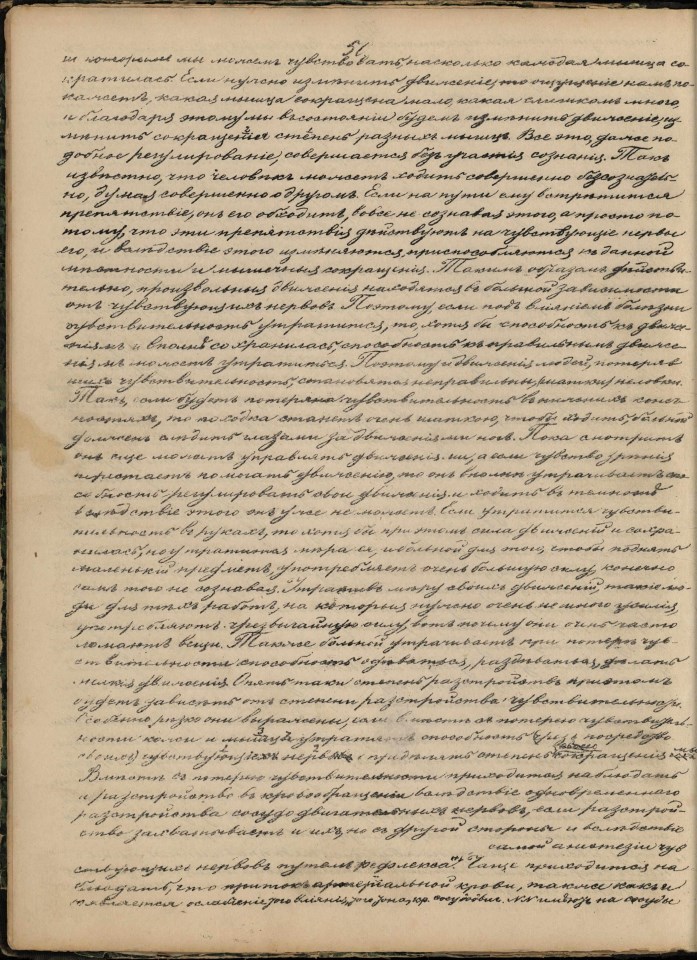 51.
ми которыхе мы можемъ чувствовать, насколько каждая мышца со-
кратилась. Если нужно измѣнить движеніе, то ощущеніе намъ по-
кажетъ, какая мышца сокращена мало, какая слишкомъ много,
и благодаря этому мы въ состояніи будемъ измѣнить движеніе, из-
мѣнить сокращенія степень разныхъ мышцъ. Все это, даже по-
добное регулированіе, совершается безъ участія сознанія. Такъ
извѣстно, что человѣкъ можетъ ходить совершенно безсознатель-
но, думая совершенно о другомъ. Если на пути ему встрѣтится
препятствіе, онъ его обходитъ, вовсе не сознавая этого, а просто по-
тому, что эти препятствія дѣйствуютъ на чувствующіе нервы
его, и вслѣдствіе этого измѣняются, приспособляются къ данной
мѣстности и мышечныя сокращенія. Такимъ образомъ дѣйстви-
тельно, произвольныя движенія находятся въ большой зависимости
отъ чувствующихъ нервовъ. Поэтому, если подъ вліяніемъ болѣзни
чувствительность утратится, то, хотя бы способность къ движе-
ніямъ и вполнѣ сохранилась, способность къ правильнымъ движе-
ніямъ можетъ утратиться. Поэтому и движенія людей, потеряв-
шихъ чувствительность, становятся неправильны, шатки, неловки.
Такъ, если будетъ потеряна чувствительность въ нижнихъ конеч-
ностяхъ, то походка станетъ очень шаткою, чтобы ходить, больной
долженъ слѣдить глазами за движеніями ногъ. Пока смотритъ
онъ еще можетъ управлять движеніями, а если чувство зрѣнія
перестаетъ помогать движенію, то онъ вполнѣ утрачиваетъ спо-
собность регулировать свои движенія и ходить въ темнотѣ
вслѣдствіе этого онъ уже не можетъ. Если утратится чувстви-
тельность въ рукахъ, то хотя бы при этомъ сила движеній и сохра-
нилась, но утрачивается мѣра ея, и больной для того, чтобы поднять
маленькій предметъ, употребляетъ очень большую силу, конечно
самъ того не сознавая. Утративъ мѣру своихъ движеній, такіе лю-
ди для тѣхъ работъ, на которыя нужно очень не много усилія,
употребляютъ чрезвычайную силу, вотъ почему они очень часто
ломаютъ вещи. Также больной утрачиваетъ при потерѣ чув-
ствительности способность одѣваться, раздѣваться, дѣлать
мелкія движенія. Опять таки степень разстройствъ при этомъ
будетъ зависѣть отъ степени разстройства чувствительности.
Особенно рѣзко они выражены, если вмѣстѣ съ потерею чувствитель-
ности кожи и мышцы утратятъ способность чрезъ посредство
своихъ чувствующихъ нервовъ опредѣлять степень своего сокращенія
Вмѣстѣ съ потерею чувствительности приходится наблюдать
и разстройство въ кровообращеніи вслѣдствіе одновременнаго
разстройства сосудодвигательныхъ нервовъ, если разстрой-
ство захватываетъ и ихъ, но съ другой стороны и вслѣдствіе
самой анэстезіи чув
ствующихъ нервовъ путемъ рефлекса. Чаще приходится на
блюдать, что притокъ артеріальной крови, также какъ и
является ослабленіе его вліянія, его тона, кр. сосудовъ. NN имѣютъ на сосуды